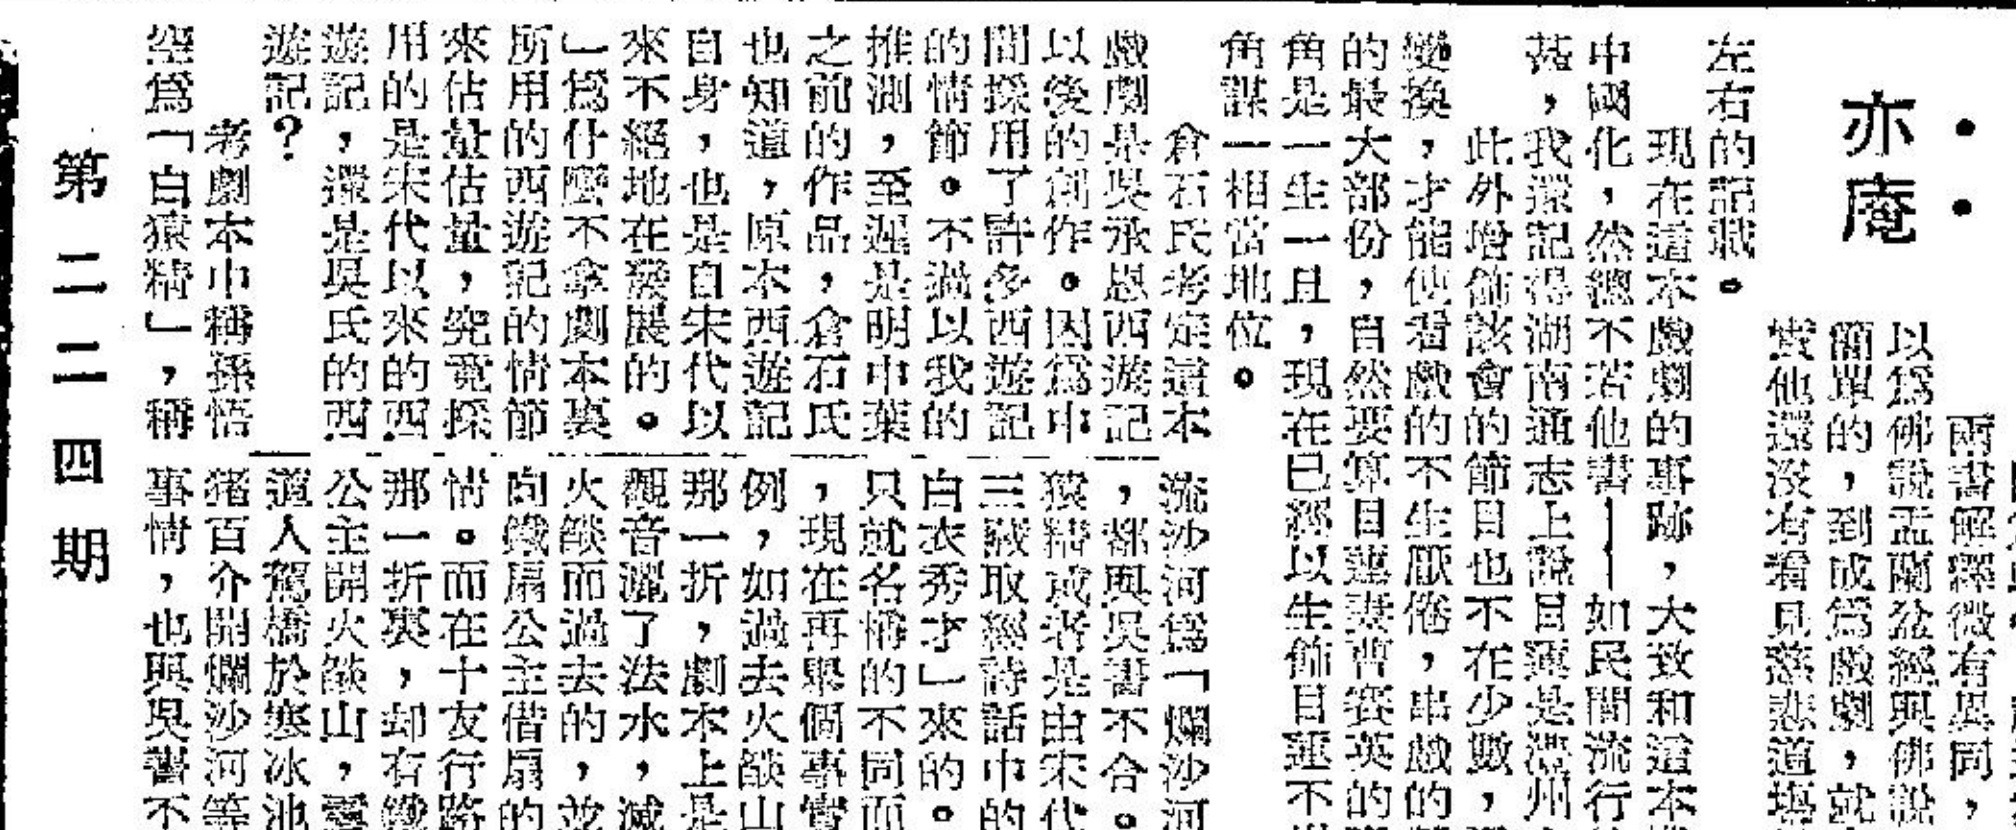 亦庵
兩書解釋微有異同，
以爲佛說盂蘭盆經與佛說
簡單的，到成爲戲劇，就
實他還沒有看見慈悲道場
左右的記載。
現在這本戲劇的事跡，大致和這本
中國化，然總不若他書——如民間流行
甚，我還記得湖南通志上說目蓮是州
此外增飾該會的節目也不在少數，
變換，才能使看戲的不生厭倦，串戲的
的最大部份，自然要算目蓮妻曹賽英的
角是一生一旦，現在已經以生飾目蓮不
角謀一相當地位。
倉石氏考定這本
戲劇是吳承恩西遊記
以後的創作。因爲中
間採用了許多西遊記
的情節。不過以我的
推測，至遲是明中葉
之前的作品，倉石氏
也知道，原本西遊記
自身，也是自宋代以
來不絕地在發展的。
」爲什麼不拿劇本裏
所用的西遊記的情節
來估量估量，究竟採
用的是宋代以來的西
遊記，還是吳氏的西
遊記？
考劇本中稱孫悟
空爲「白猿精」，稱
流沙河爲「爛沙河
，都與吳書不合。
猿精或者是由宋代
三藏取經詩話中的
白衣秀才」來的。
只就名稱的不同而
，現在再舉個事實
例，如過去火燄山
那一折，劇本上是
觀音灑了法水，滅
火燄而過去的，並
向鐵扇公主借扇的
情。而在十友行路
那一折裏，却有鐵
公主開火燄山，雲
道人駕橋於寒冰池
猪百介開爛沙河等
事情，也與吳書不
第二二四期